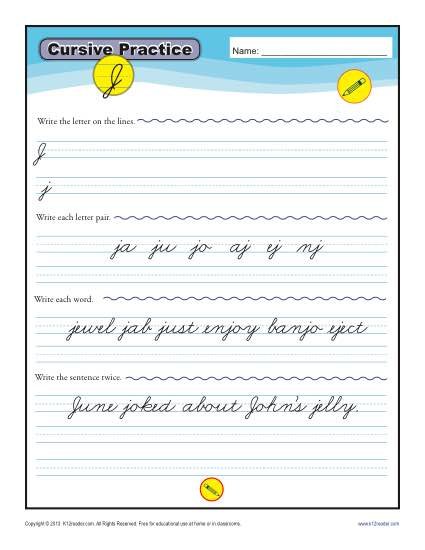 Cursive Practice
Name:
J
Write the letter on the lines.
J
j
Write each letter pair.
ja ju jo aj ej nj
Write each word.
jewel jab just enjoy banjo eject
Write the sentence twice.
June joked about John's jelly.
Copyright © 2013 K12reader.com. All Rights Reserved. Free for educational use at home or in classrooms.
www.k12reader.com